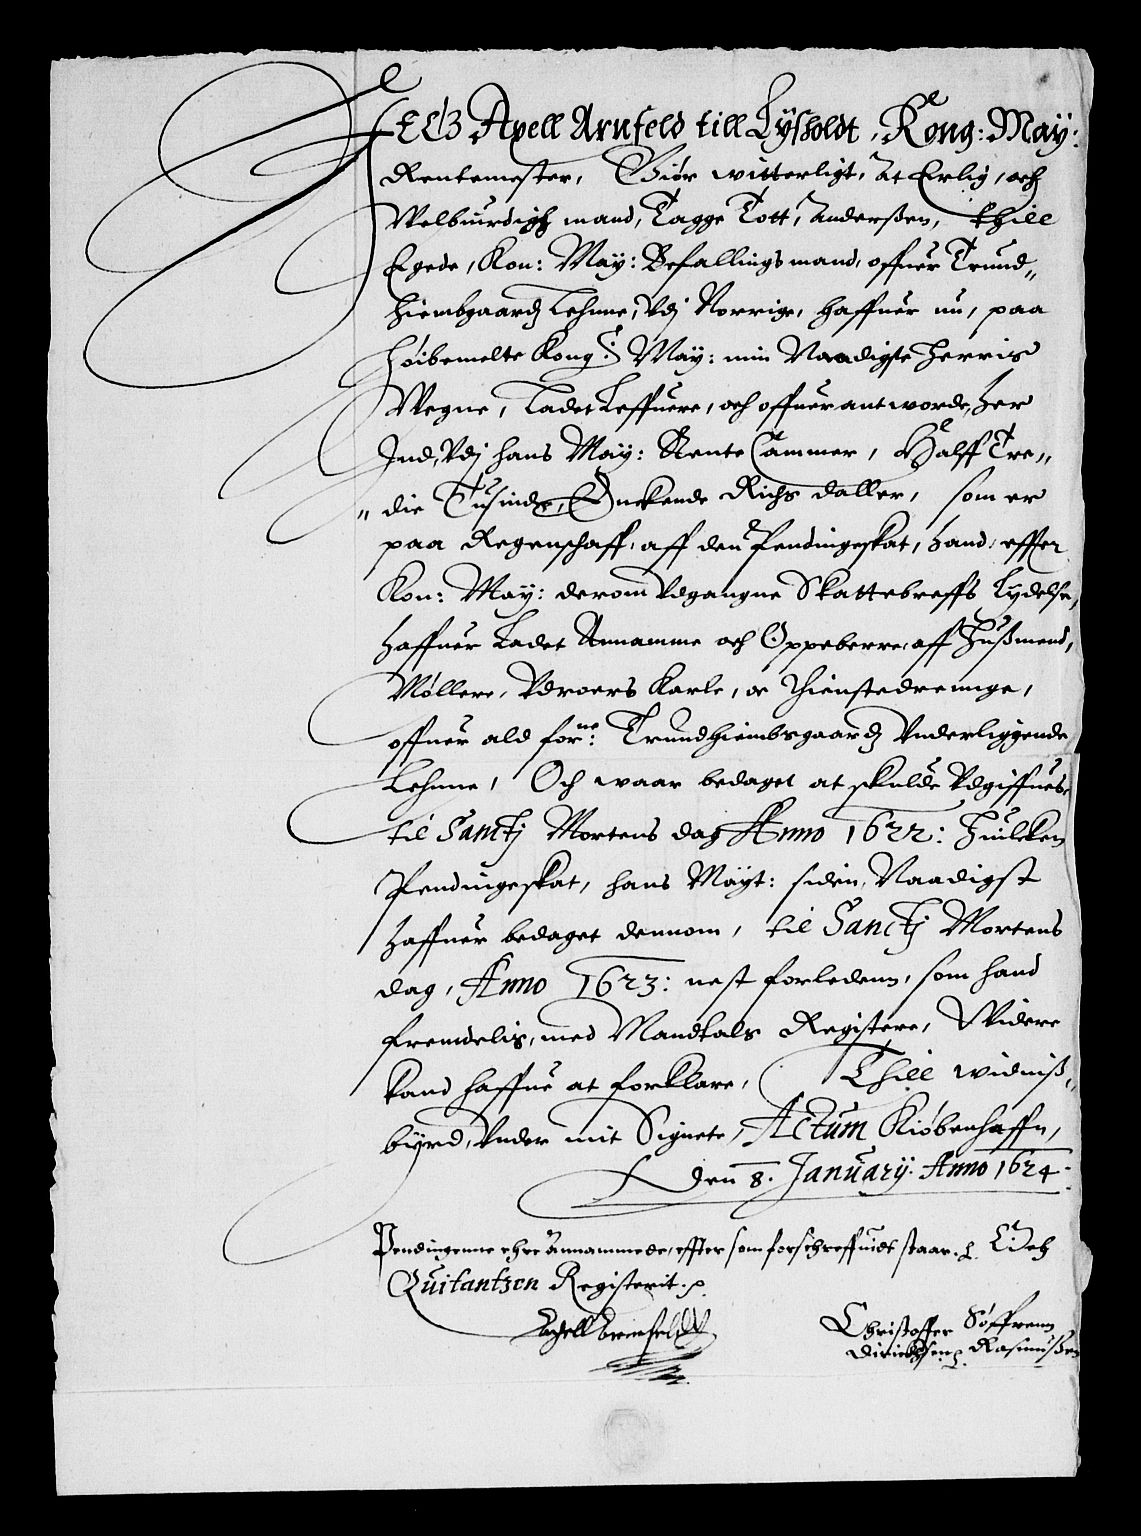 Jeg Axell Arnfeld till Lÿsholdt, Kong: Maÿ:
Rentemester, Giør witterligt, At Erlig, och
Welbuurdigh mand, Tagge Tott, Anderßen, thill
Egede, Kon: May: Befallingsmand, offuer Trund„
hiembgaardz Lehnne, Vdj Norrige, haffuer nu, paa
høibemelte Kong: May: min Naadigste Herris
Wegne, Ladet Leffuere, och offuerantworde, her
Ind, Vdj hans May: Rente Cammer, Halff Tre„
„ die Tusinde, Enckende Richs daller, som er
paa Regenschaff, aff den Pendingeskat, hand, effter
Kon: May: derom Vdgangne Skattebreffs Lydelse,
haffuer Ladet Annamme och Oppeberre, aff Hußmend,
Møllere, Vdroers Karle, oc Thienstedrennge,
offuer ald forne: Trundhiembsgaardz Vnderliggende
Lehnne, Och waar bedaget at skulde Vdgiffues
til Sanctj Mortens dag Anno 1622: Huilcken
Pendingeskat, hans Maÿt: siden, Naadigst
haffuer bedaget dennom, til Sanctj Mortens
dag, Anno 1623: nest forledenn, som hand
fremdelis, med Mandtals Registere, Widere
kand haffue at forklare, Thill widniß„
bÿrd, Vnder mit Signete, Actum Kiøbenhaffn,
den 8. Januarÿ. Anno 1624.
Pendingenne ehre Annammede, effter som forschreffuidt staar. Och
Quitantzen Registerit.
Axell Arenfeldt
Christoffer Søffrenn
Dirichsen Rasmußen